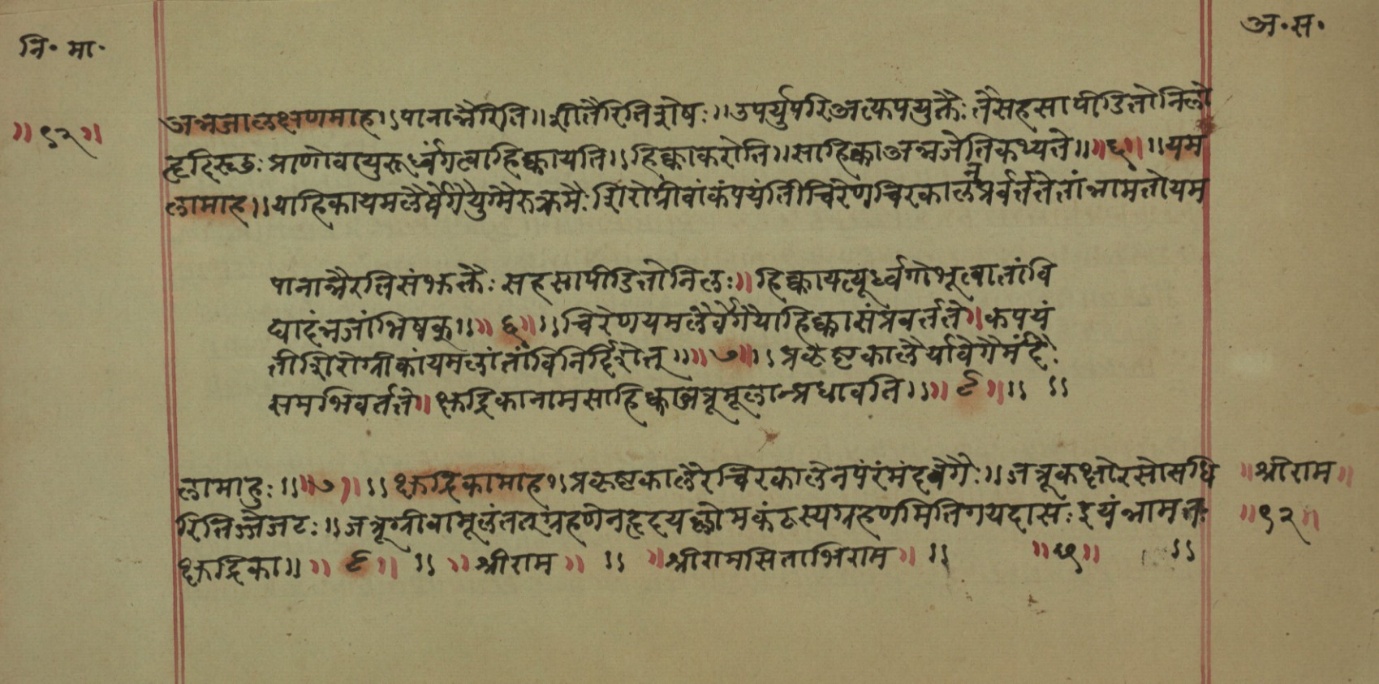 नि॰ मा॰
अ॰ स॰
॥९२॥
अन्नजालक्षणमाह॥पानान्नैरिति॥शीतैरितिशेषः॥उपर्युपरिअत्यपयुक्तैः तैसहसापीडितोनिलो
हृदिरूढः प्राणोवायुरूर्ध्वगत्वाहिक्कायति॥हिक्काकरोति॥साहिक्काअन्नजेतिकथ्यते॥॥६॥॥यम
लामाह॥याहिकायमलैर्वेगैर्युग्मैरुक्रमैः शिरोग्रीवांकंपयंतीचिरेणचिरकालेनप्रवर्त्ततेतांनामंतोयम
पानान्नैरतिसंभक्तैः सहसापीडितोनिलः॥हिक्कायत्यूर्ध्वगोभूत्वातांवि
द्यादंन्नजांभिषक्॥॥६॥॥चिरेणयमलैर्वेगैर्याहिक्कासंप्रवर्त्तते॥कपयं
तीशिरोग्रीकांयमलांतांविनिर्दिशेत्॥॥७॥॥प्रकृष्टकालैर्यावेगैर्मंदैः
समभिवर्तते॥क्षुद्रिकानामसाहिक्काजत्रूमूलात्प्रधावति॥॥८॥॥ ॥
लामाहुः॥॥७॥॥क्षुद्रिकामाह॥प्रकृष्टकालैरैचिरकालेनपंरंमंदवेगैः॥जत्रूकक्षोरसोसंधि
रितिज्जैजटः॥जत्रूग्रीवामूलंततग्रंहणेनहृदयक्लोमकंठस्यग्रहणमितिगयदासः इयंनामतः
क्षुद्रिका॥॥८॥॥ ॥श्रीराम॥ ॥ ॥श्रीरामसिताभिराम॥ ॥ ॥५॥ ॥
॥श्रीराम॥
॥९२॥